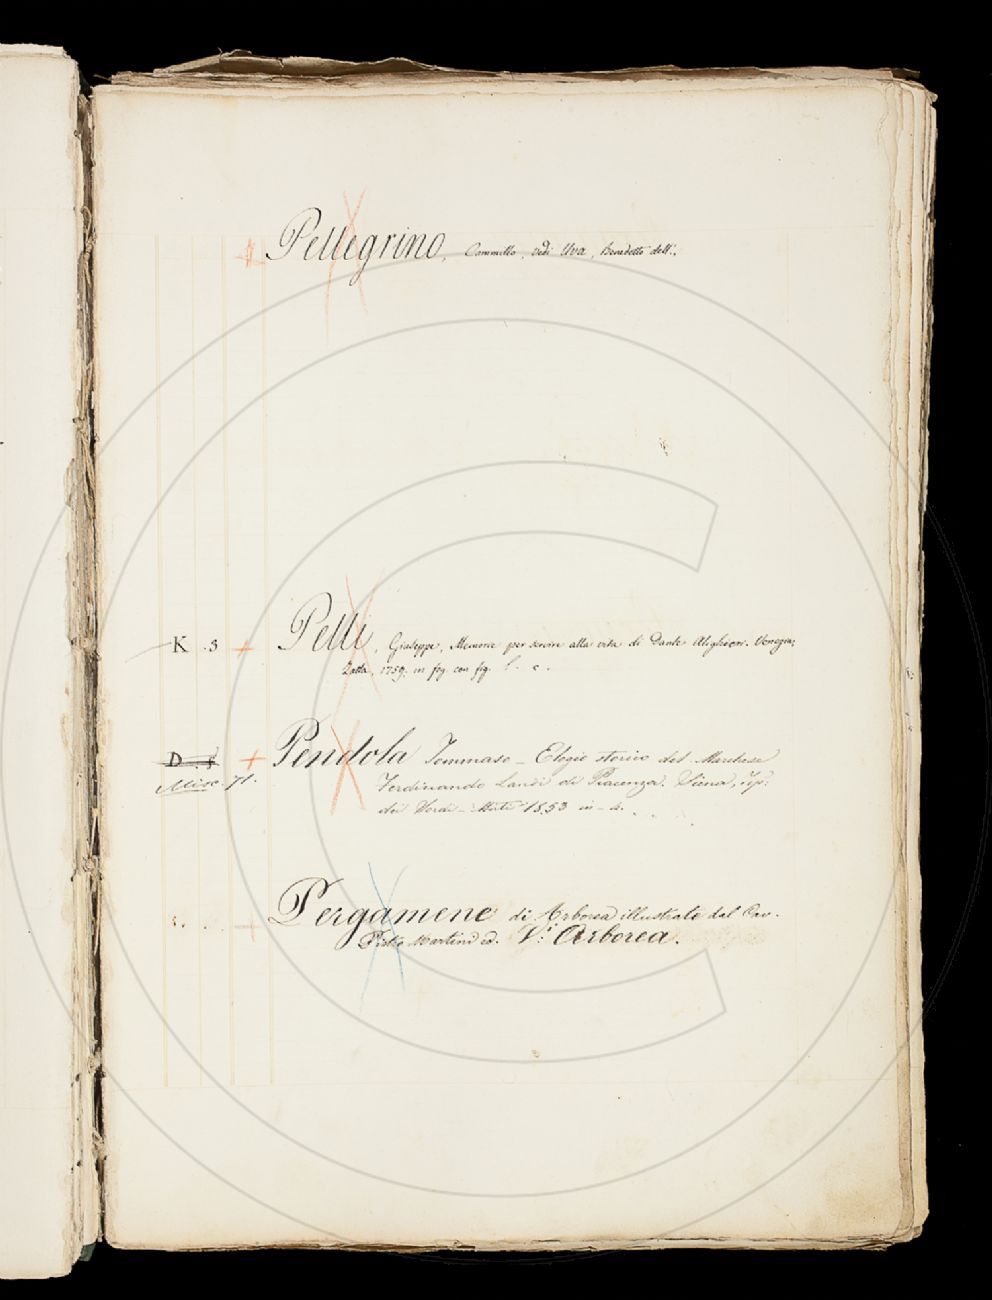 Pellegrino, Cammillo, vedi Uva, Benedetto dell'.
K. 3 Pelli, Giuseppe, Memorie per servire alla vita di Dante Alighieri. Venezia,
Zatta, 1759. in fog. con fig. l. c.
D. Pendola Tommaso - Elogio storico del Marchese
Misc. 71. Ferdinando Landi di Piacenza. Siena, Tip.
dei Sordi-Muti 1853 in-4.
Pergamene di Arborea illustrate dal Cav.
Pietro Martini ed. V: Arborea.